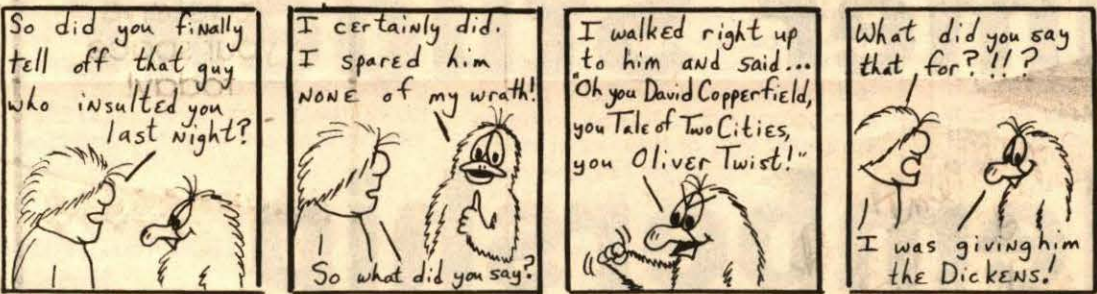 So did you finally
tell off that guy
who insulted you
last night?
I certainly did.
I spared him
NONE of my wrath!
So what did you say?
I walked right up
to him and said...
"Oh you David Copperfield,
you Tale of Two Cities,
you Oliver Twist!"
What did you say
that for?!!?
I was giving him
the Dickens!